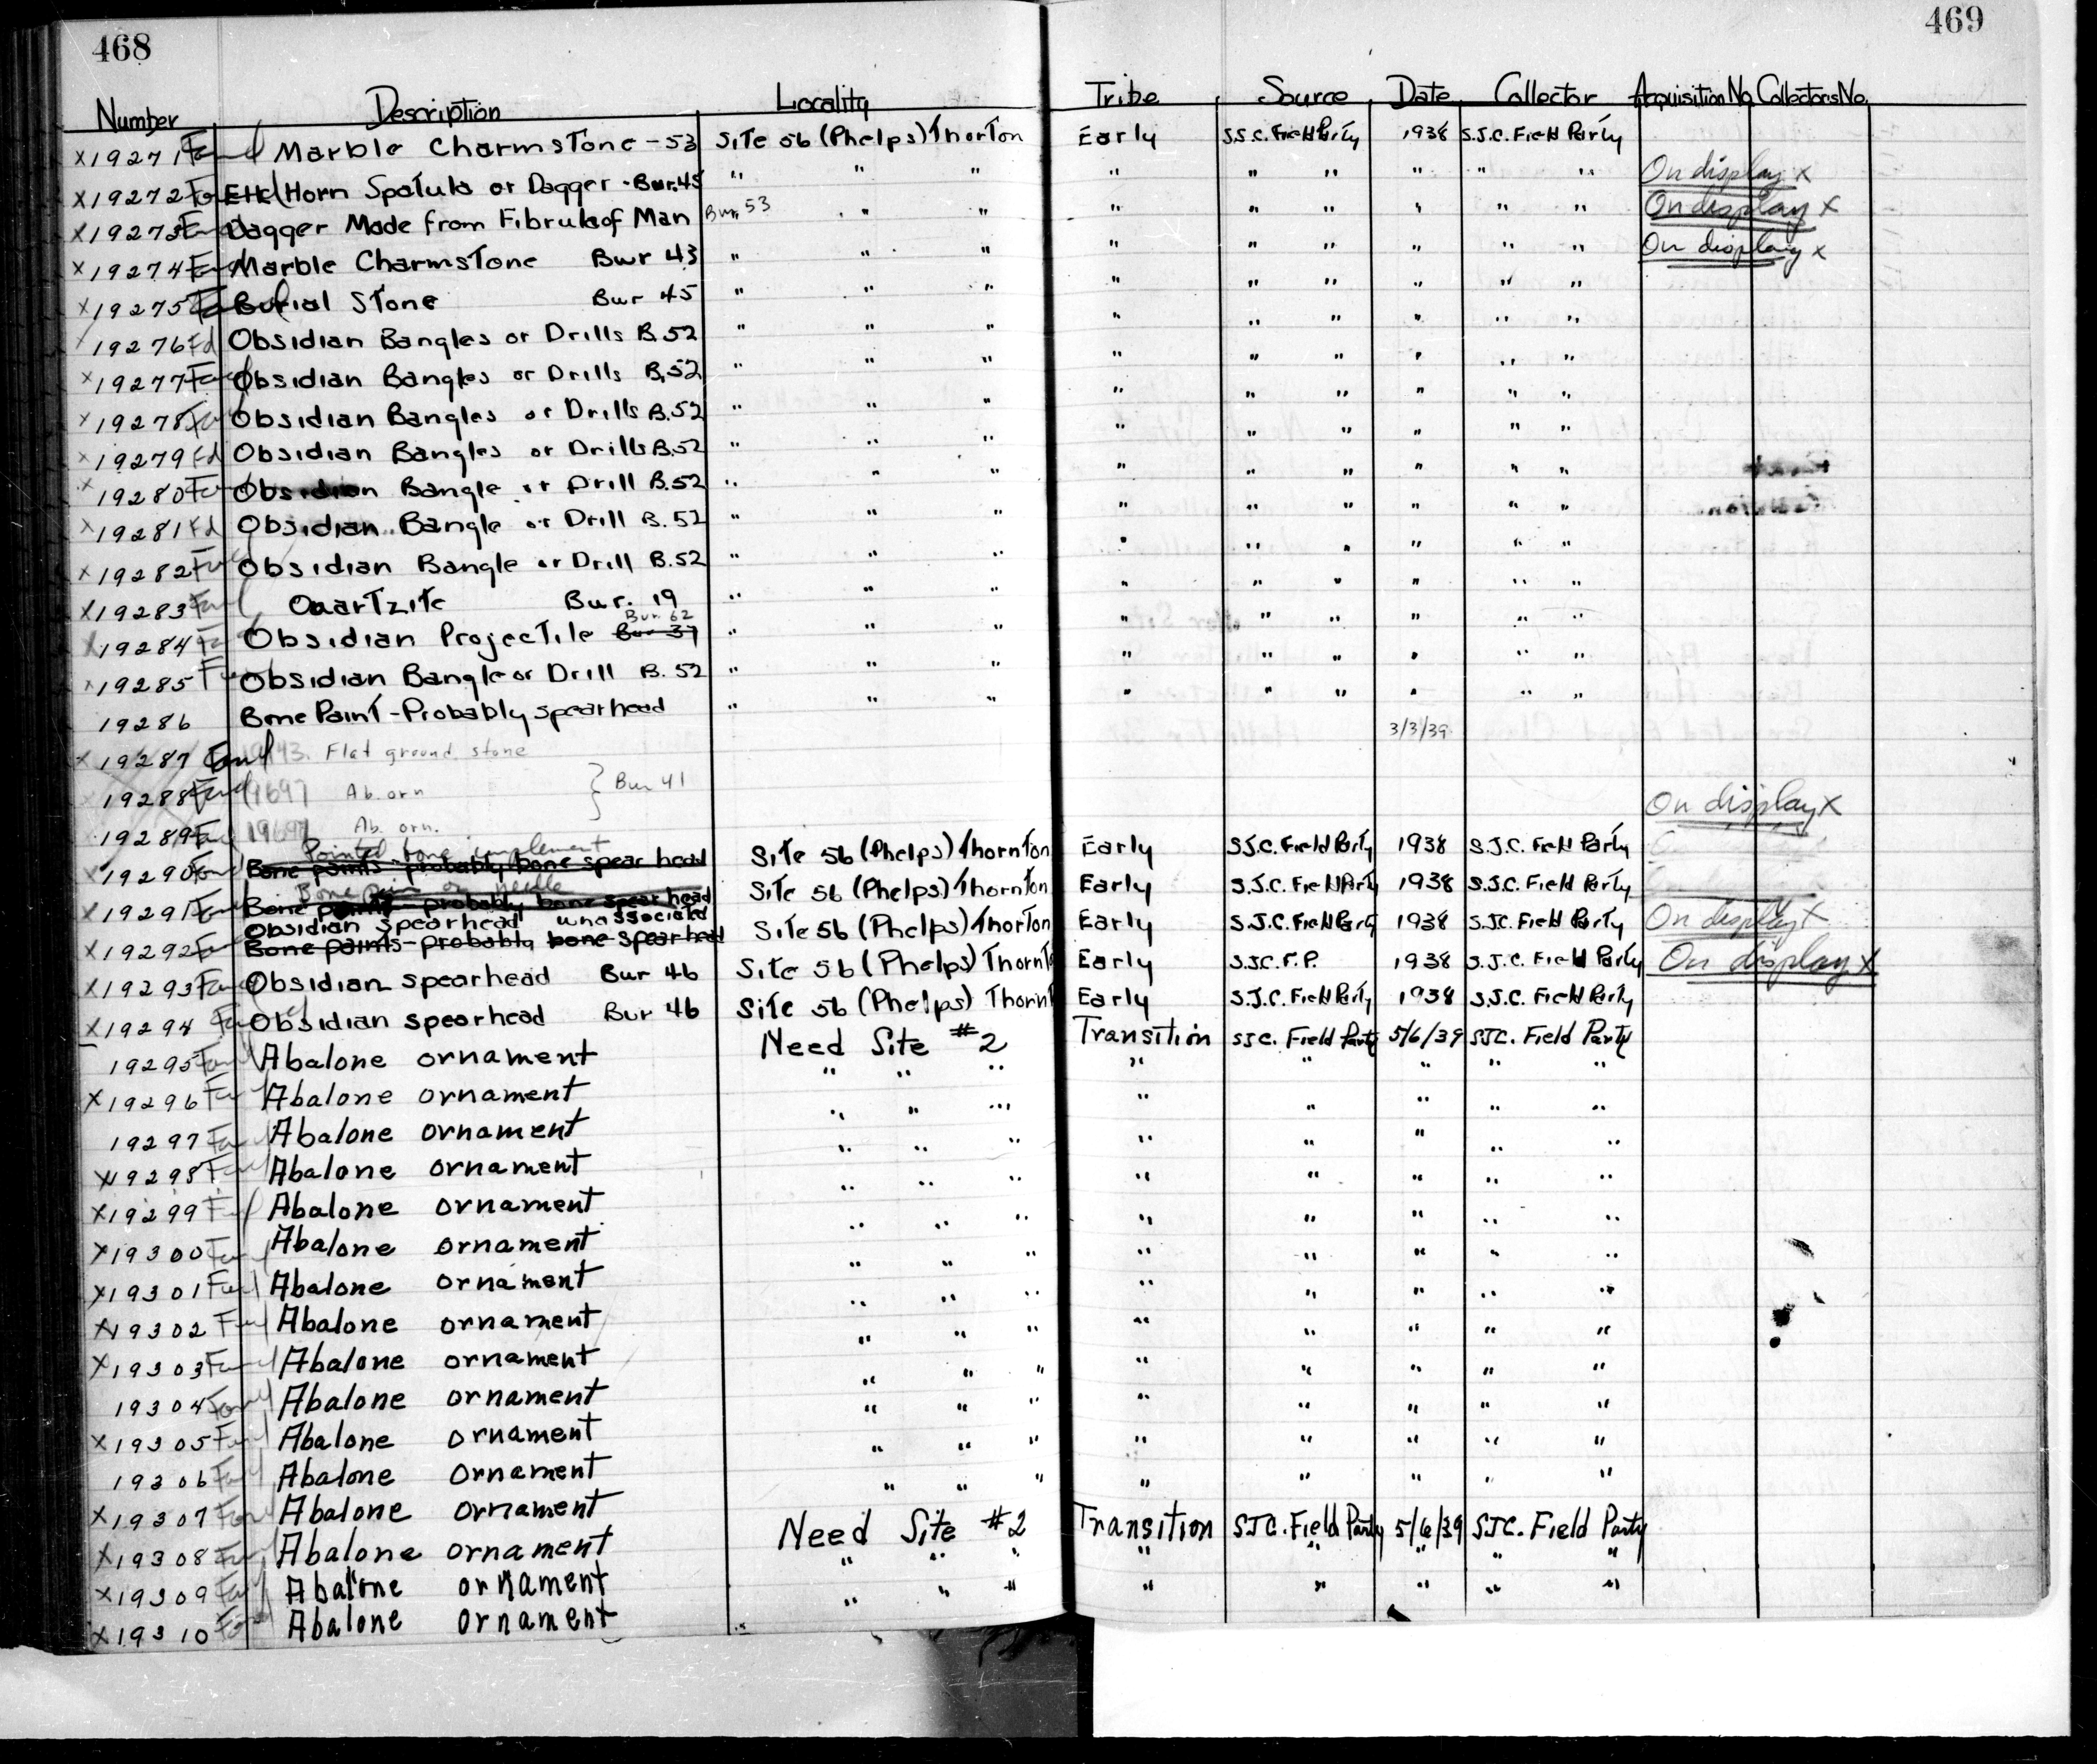 468
469
Number Description Locality Tribe Source Date Collector Acquisition No. Collectors No.
X19271 Found Marble Charmstone - 53 Site 56 (Phelps) Thorton Early S.S.C. Field Party 1938 S.J.C. Field Party
X19272 Elk Horn Spatula or Dagger - Bur. 45 " " " " " " " " " On display X
X19273 Dagger Made from Fibrula of Man Bur. 53 " " " " " " " " On display X
X19274 Marble Charmstone Bur 43 " " " " " " " " " On display X
X19275 Burial Stone Bur 45 " " " " " " " " "
19276 Fd Obsidian Bangles or Drills B.52 " " " " " " " " "
X19277 Obsidian Bangles or Drills B.52 " " " " " " " " "
X19278 Obsidian Bangles or Drills B.52 " " " " " " " " "
X19279 Fd Obsidian Bangles or Drills B.52 " " " " " " " " "
X19280 Obsidian Bangle or Drill B.52 " " " " " " " " "
X19281 Fd Obsidian Bangle or Drill B.52 " " " " " " " " "
X19282 Obsidian Bangle or Drill B.52 " " " " " " " " "
X19283 Quartzite Bur. 19 " " " " " " " " "
X19284 Obsidian Projectile Bur 37 Bur. 62 " " " " " " " " "
X19285 Obsidian Bangle or Drill B. 52 " " " " " " " " "
19286 Bone Paint - Probably spearhead " " " " " " " " "
X19287 Found Flat ground stone 3/3/39
19288 Ab. orn } Bur 41
19289 Ab. orn. On display X
Pointed bone implement
X19290 Bone paints - probably bone spear head Site 56 (Phelps) Thornton Early S.J.C. Field Party 1938 S.J.C. Field Party
Bone pin or needle
X19291 Bone points - probably bone spear head Site 56 (Phelps) Thornton Early S.J.C. Field Party 1938 S.J.C. Field Party
Obsidian spearhead unassociated
X19292 Bone paints - probably bone spearhead Site 56 (Phelps) Thorton Early S.J.C. Field Party 1938 S.J.C. Field Party On display X
X19293 Obsidian spearhead Bur 46 Site 56 (Phelps) Thornt Early S.J.C. F.P. 1938 S.J.C. Field Party On display X
X19294 Obsidian spearhead Bur 46 Site 56 (Phelps) Thornt Early S.J.C. Field Party 1938 S.J.C. Field Party
19295 Abalone ornament Need Site #2 Transition SJC. Field Party 5/6/39 SJC. Field Party
X19296 Abalone ornament " " " " " " " "
19297 Abalone ornament " " " " " " " "
X19298 Abalone ornament " " " " " " " "
X19299 Abalone ornament " " " " " " " "
X19300 Abalone ornament " " " " " " " "
X19301 Abalone ornament " " " " " " " "
X19302 Abalone ornament " " " " " " " "
X19303 Abalone ornament " " " " " " " "
19304 Abalone ornament " " " " " " " "
X19305 Abalone ornament " " " " " " " "
19306 Abalone ornament " " " " " " " "
X19307 Abalone ornament " " " " " " " "
X19308 Abalone ornament Need Site #2 Transition SJC. Field Party 5/6/39 SJC. Field Party
X19309 Abalone ornament " " " " " " " "
X19310 Abalone ornament " " " " " " " "